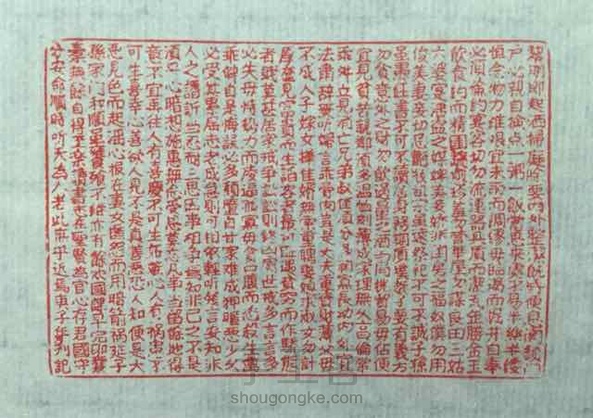 黎明即起洒掃庭除要内外整潔既昏便息關鎖門
户必親自檢点一粥一飯當思來處不易半絲半縷
恒念物力維艱宜未雨而綢繆毋臨渴而掘井自奉
必須儉約宴客切勿流連器具質而潔瓦缶勝金玉
飲食約而精園蔬愈珍羞勿營華屋勿謀良田三姑
六婆實淫盗之媒婢美妾嬌非閨房之福奴僕勿用
俊美妻妾切忌艷粧祖宗雖遠祭祀不可不誠子孫
虽愚經書不可不讀居身務期質樸教子要有義方
勿貪意外之財勿飲過量之酒與肩挑貿易毋佔便
宜見貧苦親鄰須多温恤刻薄成家理無久享倫常
乖舛立見消亡兄弟叔侄須分多潤寡長幼内外宜
法肅辭嚴听婦言乖骨肉豈是丈夫重資財薄父母
不成人子嫁女擇佳婿毋索重聘娶媳求淑女勿計
厚奩見富貴而生諂容者最可耻遇貧窮而作驕態
者賤莫甚居家戒争訟訟則終凶處世戒多言言多
必失毋恃勢力而凌逼孤寡毋貪口腹而恣殺生禽
乖僻自是悔誤必多頹惰自甘家難成狎昵惡少久
必受其累屈志老成急則可相依輕听發言安知非
人之譖訴當忍耐三思因事相争焉知非己之不是
須平心暗想施惠無念受恩莫忘凡事當留餘地得
意不宜再往人有喜慶不可生妒忌心人有禍患不
可生喜幸心善欲人見不是真善惡恐人知便是大
惡見色而起淫心報在妻女匿怨而用暗箭禍延子
孫家門和順虽饔飧不繼亦有餘歡國課早完即囊
橐無餘自得至樂讀書志在聖賢為官心存君國守
分安命順時听天為人若此庶乎近焉庚子
手工客
shougongke.com